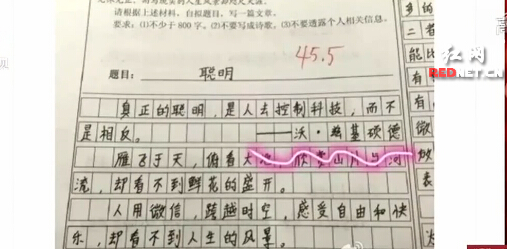 请根据上述材料,自拟题目,写一篇文章。
要求:(1)不少于800字。(2)不要写成诗歌。(3)不要透露个人相关信息。
45.5
题目: 聪明
真正的聪明,是人去控制科技,而不
是相反。 ——沃·
雁飞于天,俯看大地,欣赏山川与河
流,却看不到鲜花的盛开。
人用微信,跨越时空,感受自由和快
乐,却看不到人生的风景。
红网
REDNET.CN
多
二
能
有
有
微
表